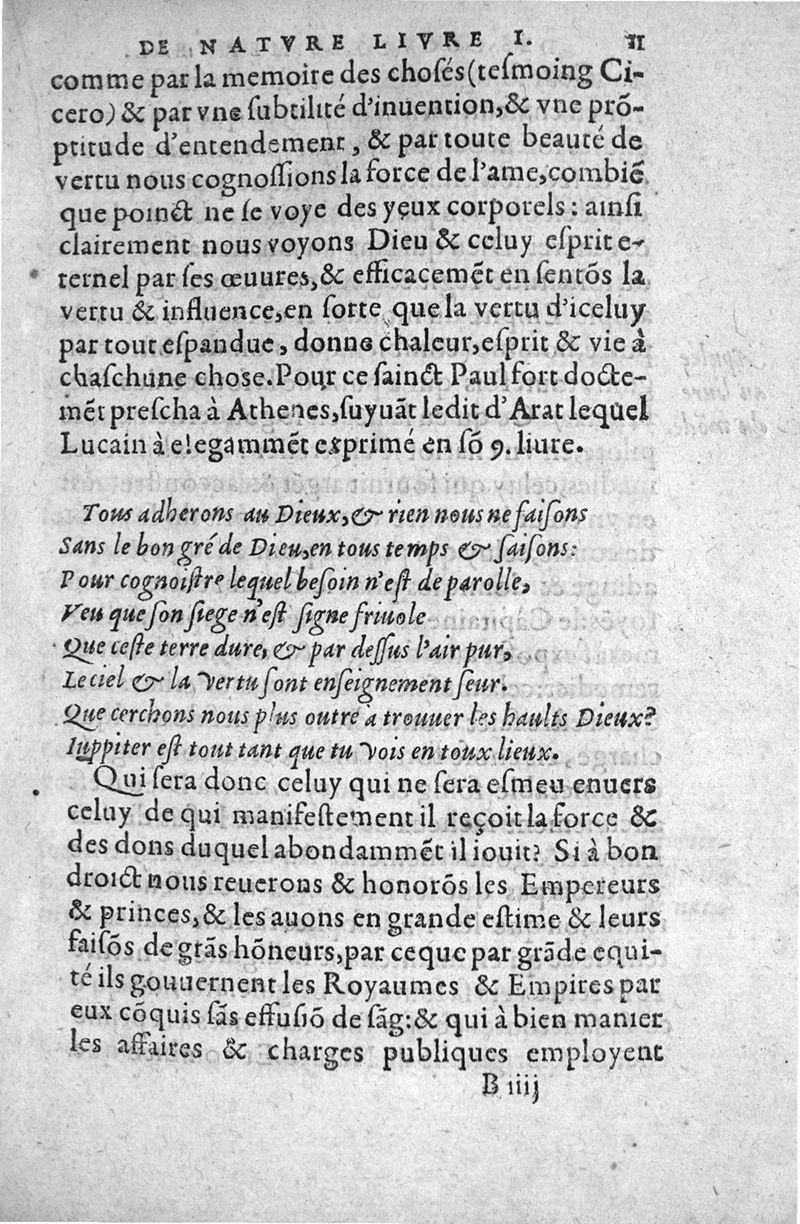 DE NATVRE LIVRE I. 11
comme par la memoire des choſés (teſmoing Ci-
cero) & par vne ſubtilité d'inuention, & vne prõ-
ptitude d'entendement, & par toute beauté de
vertu nous cognoſſions la force de l'ame, combiẽ
que poinct ne ſe voye des yeux corporels: ainſi
clairement nous voyons Dieu & celuy eſprit e-
ternel par ſes œuures, & efficacemẽt en ſentõs la
vertu & influence, en ſorte que la vertu d'iceluy
par tout eſpandue, donne chaleur, eſprit & vie à
chaſchune choſe. Pour ce ſainct Paul fort docte-
mẽt preſcha à Athenes, ſuyuãt ledit d'Arat lequel
Lucain à elegammẽt exprimé en ſõ 9. liure.
Tous adherons au Dieux, & rien nous ne faiſons
Sans le bon gré de Dieu, en tous temps & ſaiſons:
Pour cognoiſtre lequel beſoin n'eſt de parolle,
Veu que ſon ſiege n'eſt ſigne friuole
Que ceſte terre dure, & par deſſus l'air pur,
Le ciel & la vertu ſont enſeignement ſeur.
Que cerchons nous plus outre a trouuer les haults Dieux?
Iuppiter eſt tout tant que tu vois en toux lieux.
Qui ſera donc celuy qui ne ſera eſmeu enuers
celuy de qui manifeſtement il reçoit la force &
des dons duquel abondammẽt il iouit? Si à bon
droict nous reuerons & honorõs les Empereurs
& princes, & les auons en grande eſtime & leurs
faiſõs de grãs hõneurs, par ceque par grãde equi-
té ils gouuernent les Royaumes & Empires par
eux cõquis ſãs effuſiõ de ſãg: & qui à bien manier
les affaires & charges publiques employent
B iiij